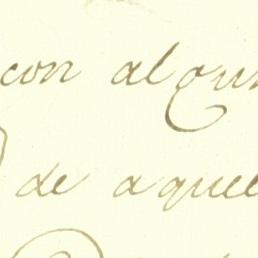 con algun
de aquel